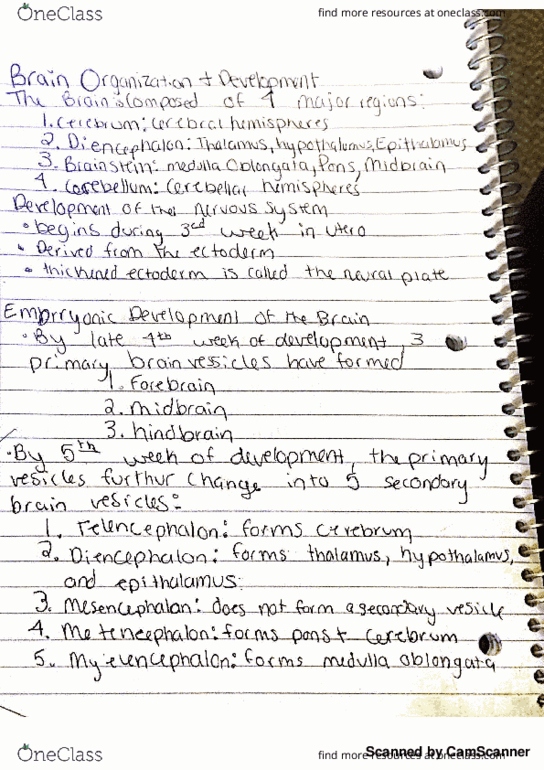 OneClass
find more resources at oneclass.com
Brain Organization + Development
The Brain is Composed of 4 major regions:
1. Cerebrum: Cerebral hemispheres
2. Diencephalon: Thalamus, hypothalamus, Epithalamus
3. Brainstem: medulla Oblongata, Pons, Midbrain
4. Cerebellum: Cerebellar hemispheres
Development of the nervous system
• begins during 3rd week in utero
• Derived from the ectoderm
• thickened ectoderm is called the neural plate
Embryonic Development of the Brain
• By late 4th week of development, 3
primary brain vesicles have formed
1. Forebrain
2. midbrain
3. hindbrain
• By 5th week of development, the primary
vesicles furthur change into 5 secondary
brain vesicles:
1. Telencephalon: forms cerebrum
2. Diencephalon: forms thalamus, hypothalamus,
and epithalamus
3. Mesencephalon: does not form a secondary vesicle
4. Metencephalon: forms pons + cerebrum
5. Myelencephalon: forms medulla oblongata
OneClass
find more resources at oneclass.com
Scanned by CamScanner